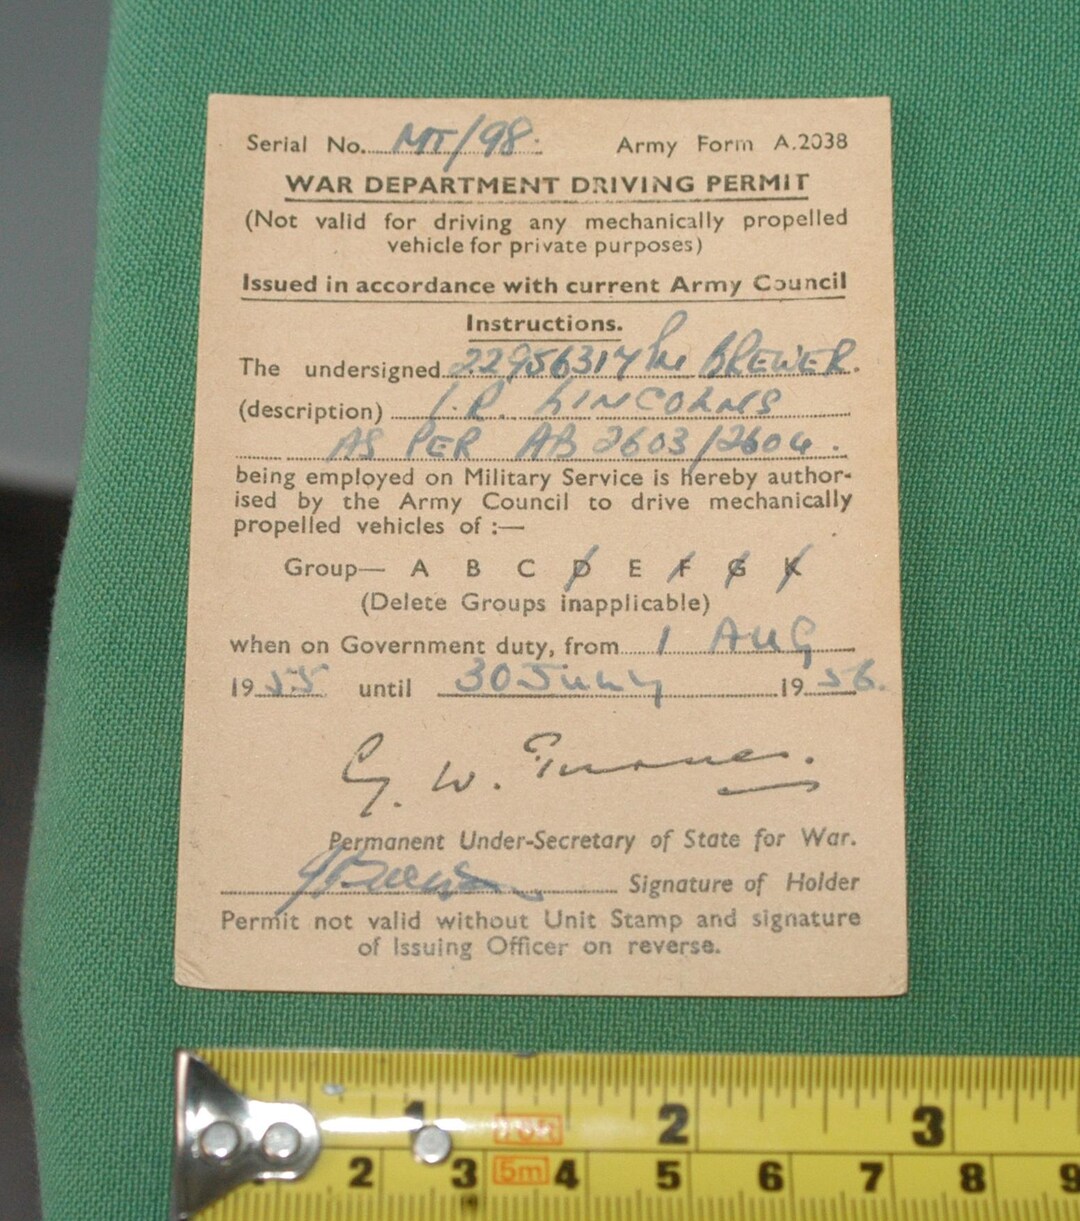 Serial No. MT/98. Army Form A.2038
WAR DEPARTMENT DRIVING PERMIT
(Not valid for driving any mechanically propelled
vehicle for private purposes)
Issued in accordance with current Army Council
Instructions.
The undersigned 22956317 BREWER.
(description) LINCOLNS
AS PER AB 2603/2604.
being employed on Military Service is hereby author-
ised by the Army Council to drive mechanically
propelled vehicles of :—
Group— A B C D E F G K
(Delete Groups inapplicable)
when on Government duty, from 1 AUG
1955 until 30 July 1956.
G. W. Turner.
Permanent Under-Secretary of State for War.
Signature of Holder
Permit not valid without Unit Stamp and signature
of Issuing Officer on reverse.
1 2 3
2 3 5m 4 5 6 7 8 9